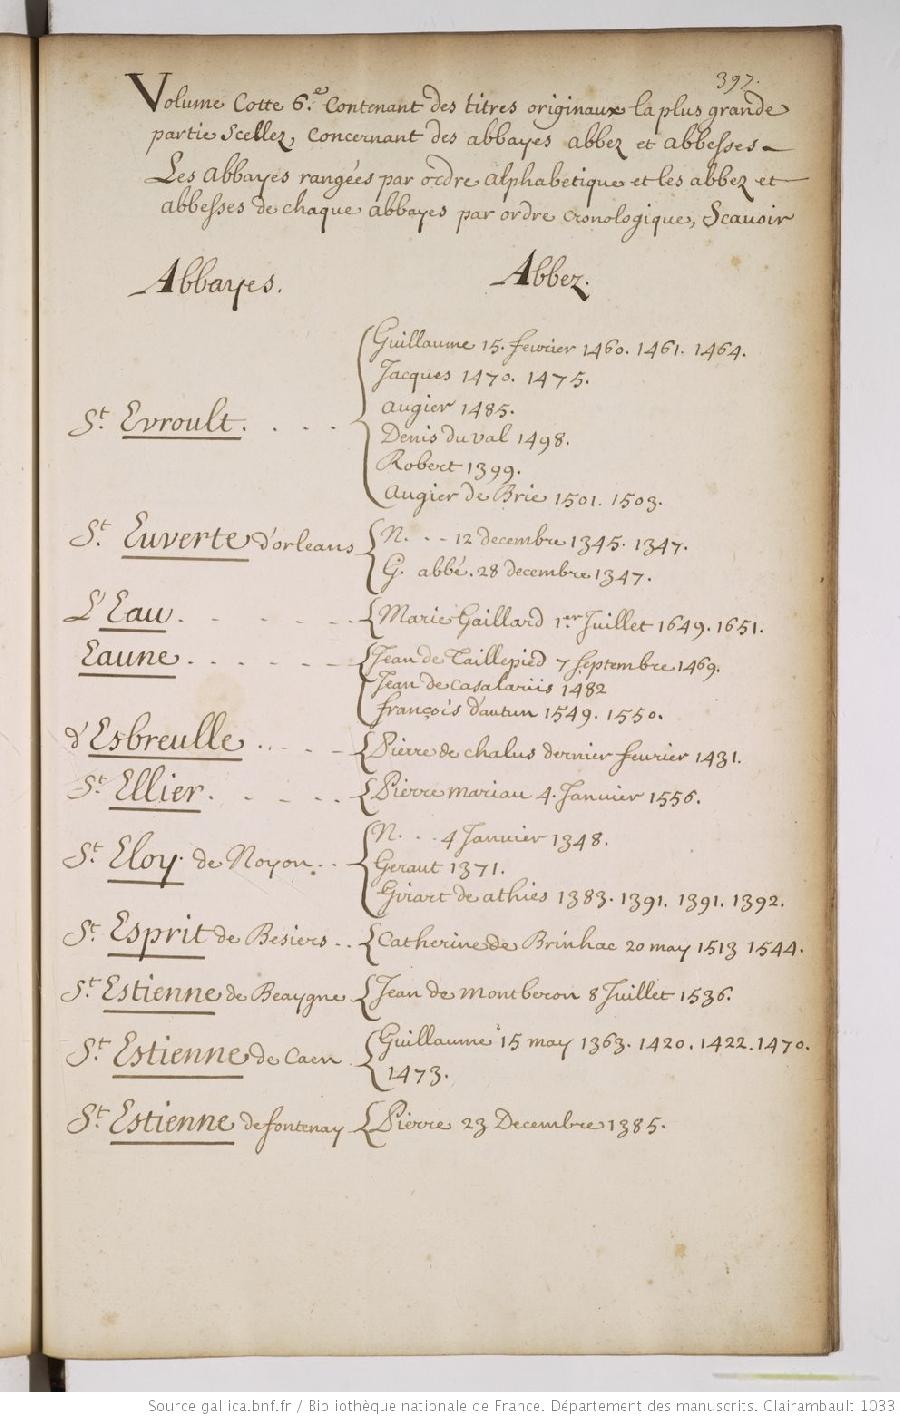 397.
Volume Cotte 6.e Contenant des titres originaux la plus grande
partie Scellez, concernant des abbayes abbez et abbesses
Les Abbayes rangées par ordre alphabetique et les abbez et
abbesses de chaque abbayes par ordre cronologique, Scauoir
Abbayes. Abbez.
Guillaume 15. feurier 1460. 1461. 1464.
Jacques 1470. 1475.
augier 1485.
St. Evroult. . . .
Denis du val 1498.
Robert 1399.
augier de Brie 1501. 1503.
St. Euverte d'orleans N. . . 12 decembre 1345. 1347.
G. abbé. 28 decembre 1347.
L'Eau . . . . . . Marie Gaillard 1er Juillet 1649. 1651.
Eaune . . . . . . Jean de Taillepied 7 septembre 1469.
Jean de casalariis 1482
françois d'autun 1549. 1550.
d'Esbreulle . . . . Pierre de chalus dernier feurier 1431.
St Ellier. . . . . Pierre mariau 4. Januier 1556.
N. . . . 4 Januier 1348.
St. Eloy. de Noyon. . . Geraut 1371.
Girart de athies 1383. 1391. 1391. 1392.
St. Esprit de Besiers . . Catherine de Brinhac 20 may 1513 1544.
St Estienne de Beaygne Jean de montberon 8 Juillet 1536.
St. Estienne de Caen. Guillaume 15 may 1363. 1420. 1422. 1470.
1473.
St. Estienne de fontenay Pierre 23 Decembre 1385.
Source gallica.bnf.fr / Bibliothèque nationale de France. Département des manuscrits. Clairambault 1033